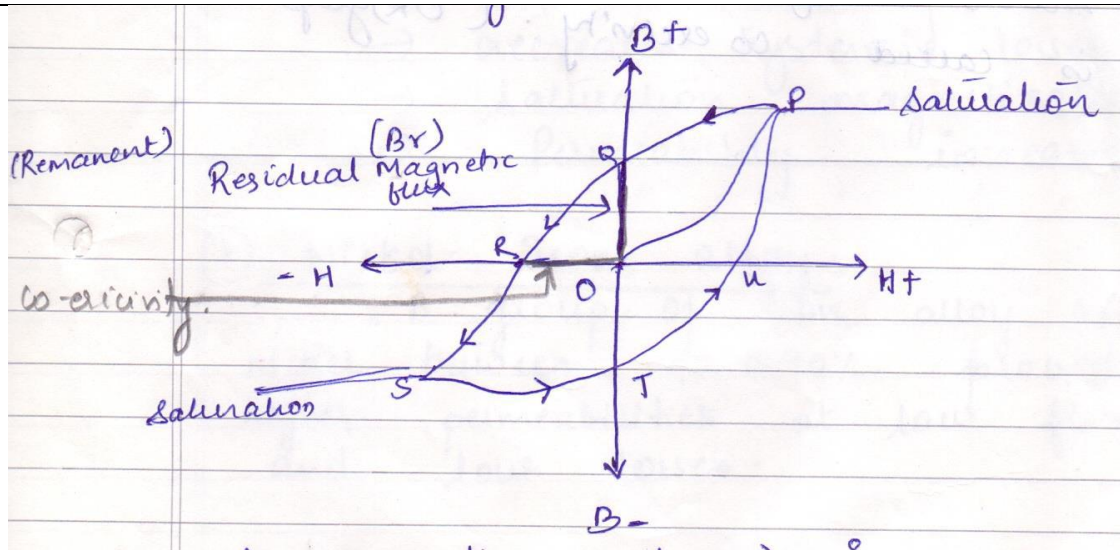 B+
P
Saturation
(Remanent)
(Br)
Residual Magnetic
flux
Q
R
- H
O
u
H+
Co-ericivity.
S
T
Saturation
B-